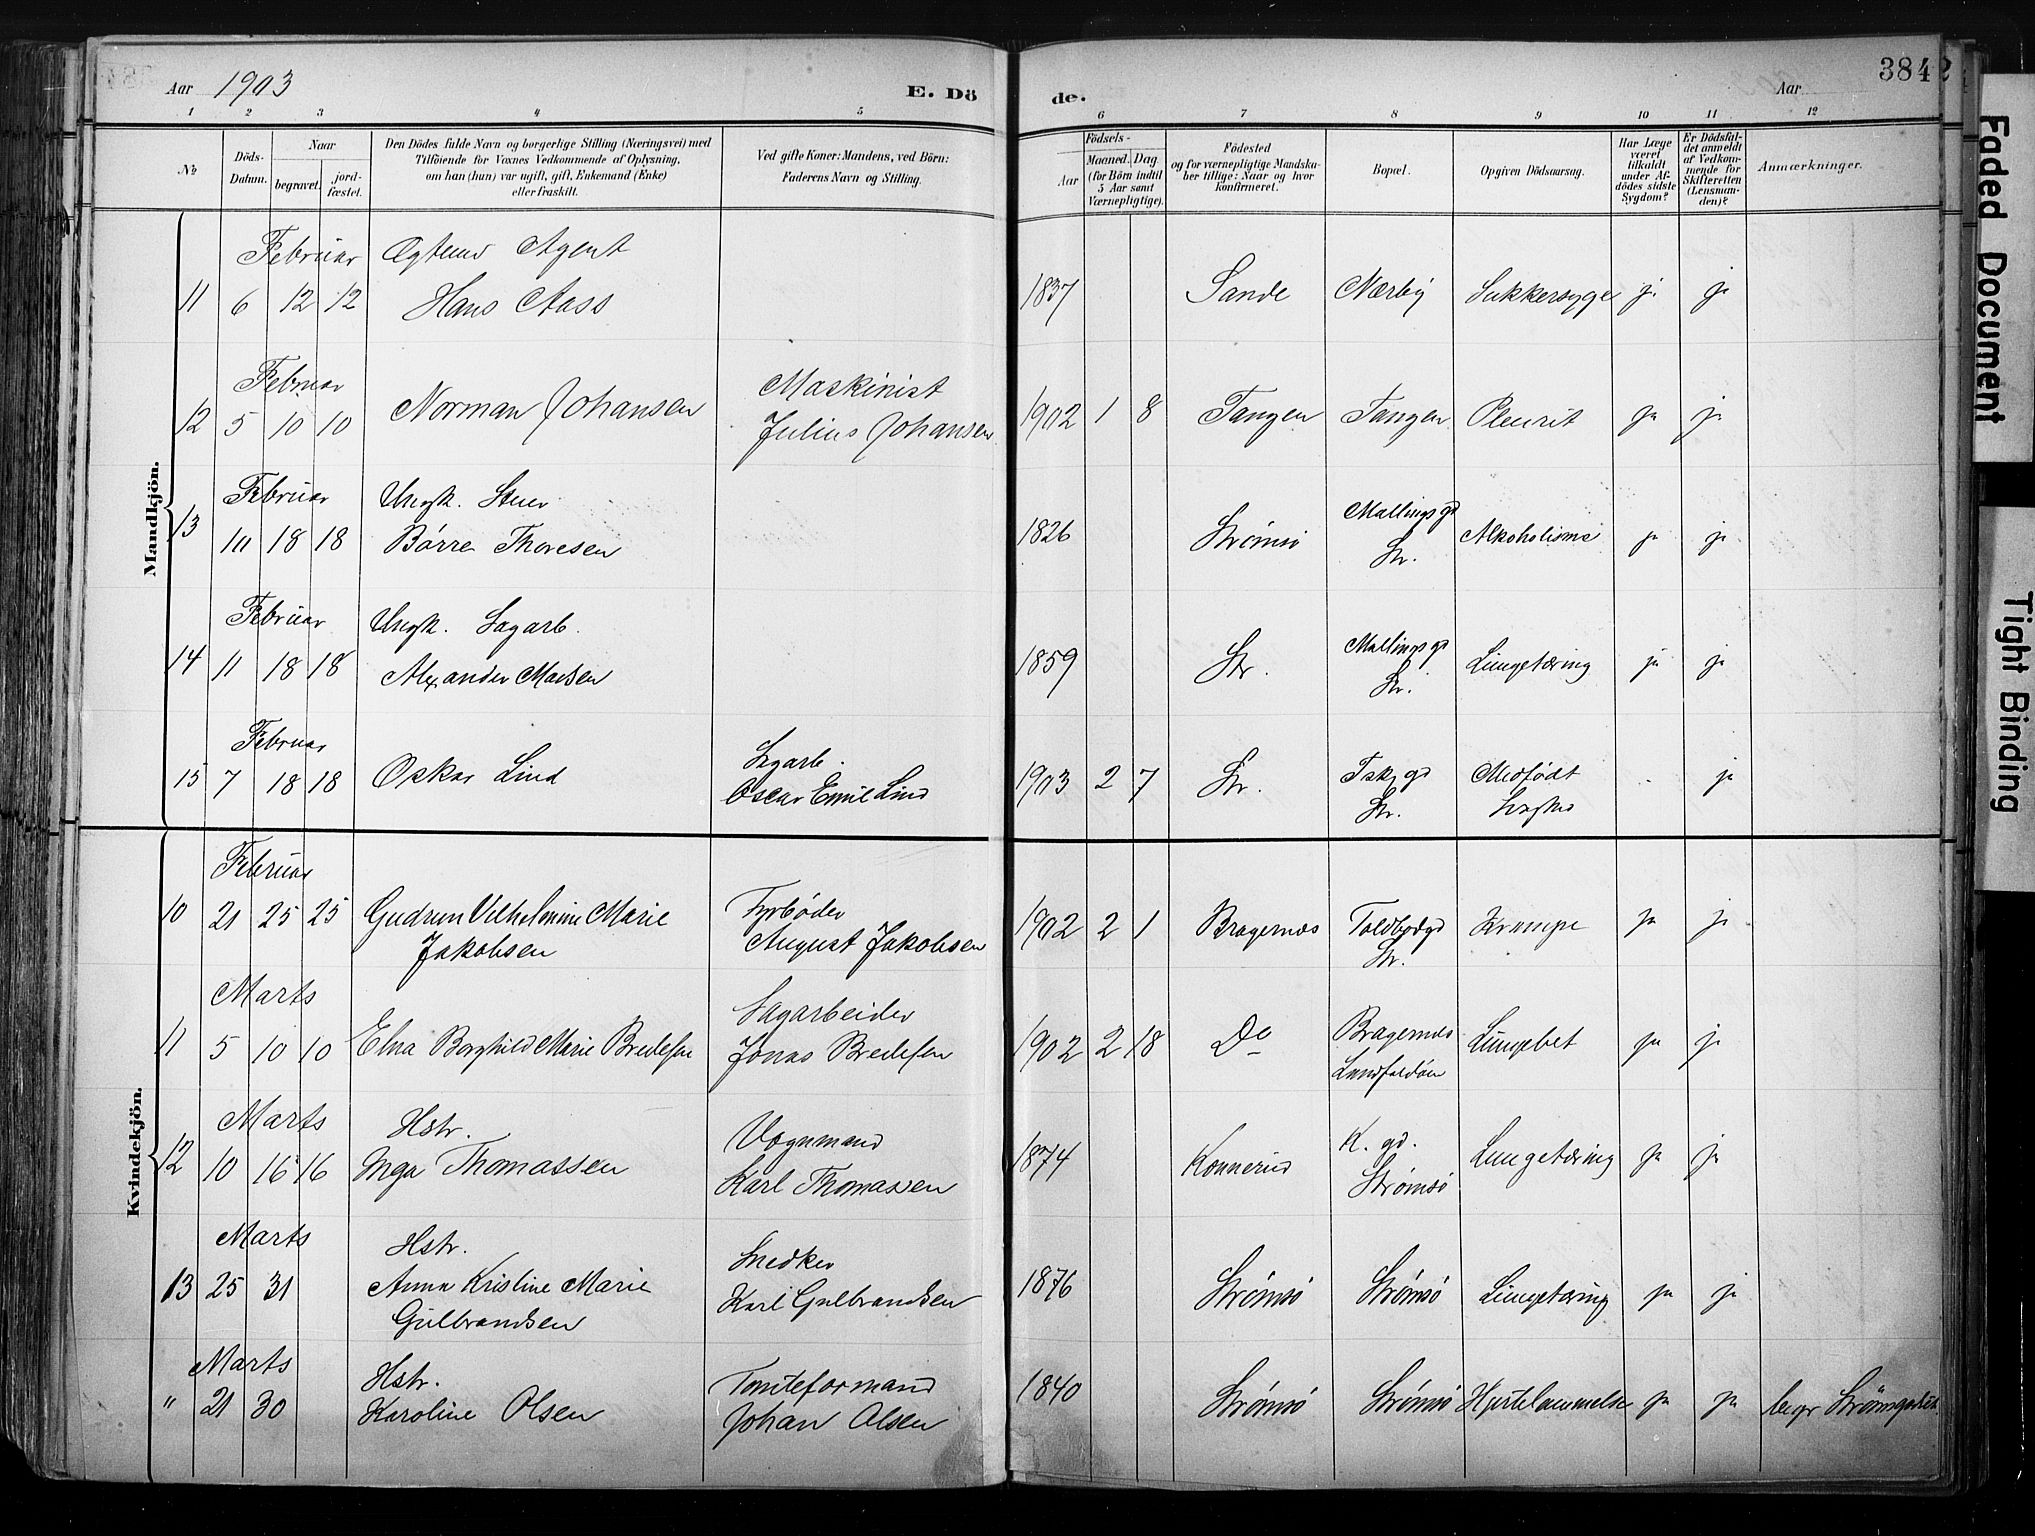 Aar 1903
E. Dö
de.
Aar
384
1 2 3 4 5 6 7 8 9 10 11 12
No
Döds-Datum.
Naar
begravet.
jord-fæstet.
Den Dödes fulde Navn og borgerlige Stilling (Næringsvei) med
Tilföiende for Voxnes Vedkommende af Oplysning,
om han (hun) var ugift, gift, Enkemand (Enke)
eller fraskilt.
Ved gifte Koner: Mandens, ved Börn:
Faderens Navn og Stilling.
Födsels-
Aar
Maaned. Dag.
(for Börn indtil
5 Aar samt
Værnepligtige).
Födested
og for værnepligtige Mandska-
ber tillige: Naar og hvor
konfirmeret.
Bopæl.
Opgiven Dödsaarsag.
Har Læge
været
tilkaldt
under Af-
dödes sidste
Sygdom?
Er Dödsfal-
det anmeldt
af Vedkom-
mende for
Skifteretten
(Lensman-
den)?
Anmærkninger.
Mandkjön.
Februar Ægtem Agent
11 6 12 12 Hans Aass 1837 Sande Nærby Sukkersyge ja ja
Februar Maskinist
12 5 10 10 Norman Johansen Julius Johansen 1902 1 8 Tangen Tangen Pleurit ja ja
Februar Ungk. Stuer Mallingsgd
13 10 18 18 Börre Thoresen 1826 Strömsö Str. Alkoholisme ja ja
Februar Ungk. Sagarb. Mallingsgd
14 11 18 18 Alexander Madsen 1859 Str. Str. Lungetæring ja ja
Februar Sagarb.
15 7 18 18 Oskar Lind Oscar Emil Lind 1903 2 7 Str. Str. Medfödt Svaghed ja
Kvindekjön.
Februar Fyrböder Toldbodgd
10 21 25 25 Gudrun Vilhelmine Marie Jakobsen August Jakobsen 1902 2 1 Bragernæs Str. Krampe ja ja
Marts Sagarbeider Bragernæs
11 5 10 10 Elna Borghild Marie Bredesen Jonas Bredesen 1902 2 18 Do Landfaldöen Lungebet ja ja
Marts Hstr. Vognmand K. gd.
12 10 16 16 Inga Thomassen Karl Thomassen 1874 Konnerud Strömsö Lungetæring ja ja
Marts Hstr. Snedker
13 25 31 Anna Kristine Marie Gulbrandsen Karl Gulbrandsen 1876 Strömsö Strömsö Lungetæring ja ja
Marts Hstr. Tomteformand
" 21 30 Karoline Olsen Johan Olsen 1840 Strömsö Strömsö Hjertelammelse ja ja begr
Faded Document
Tight Binding